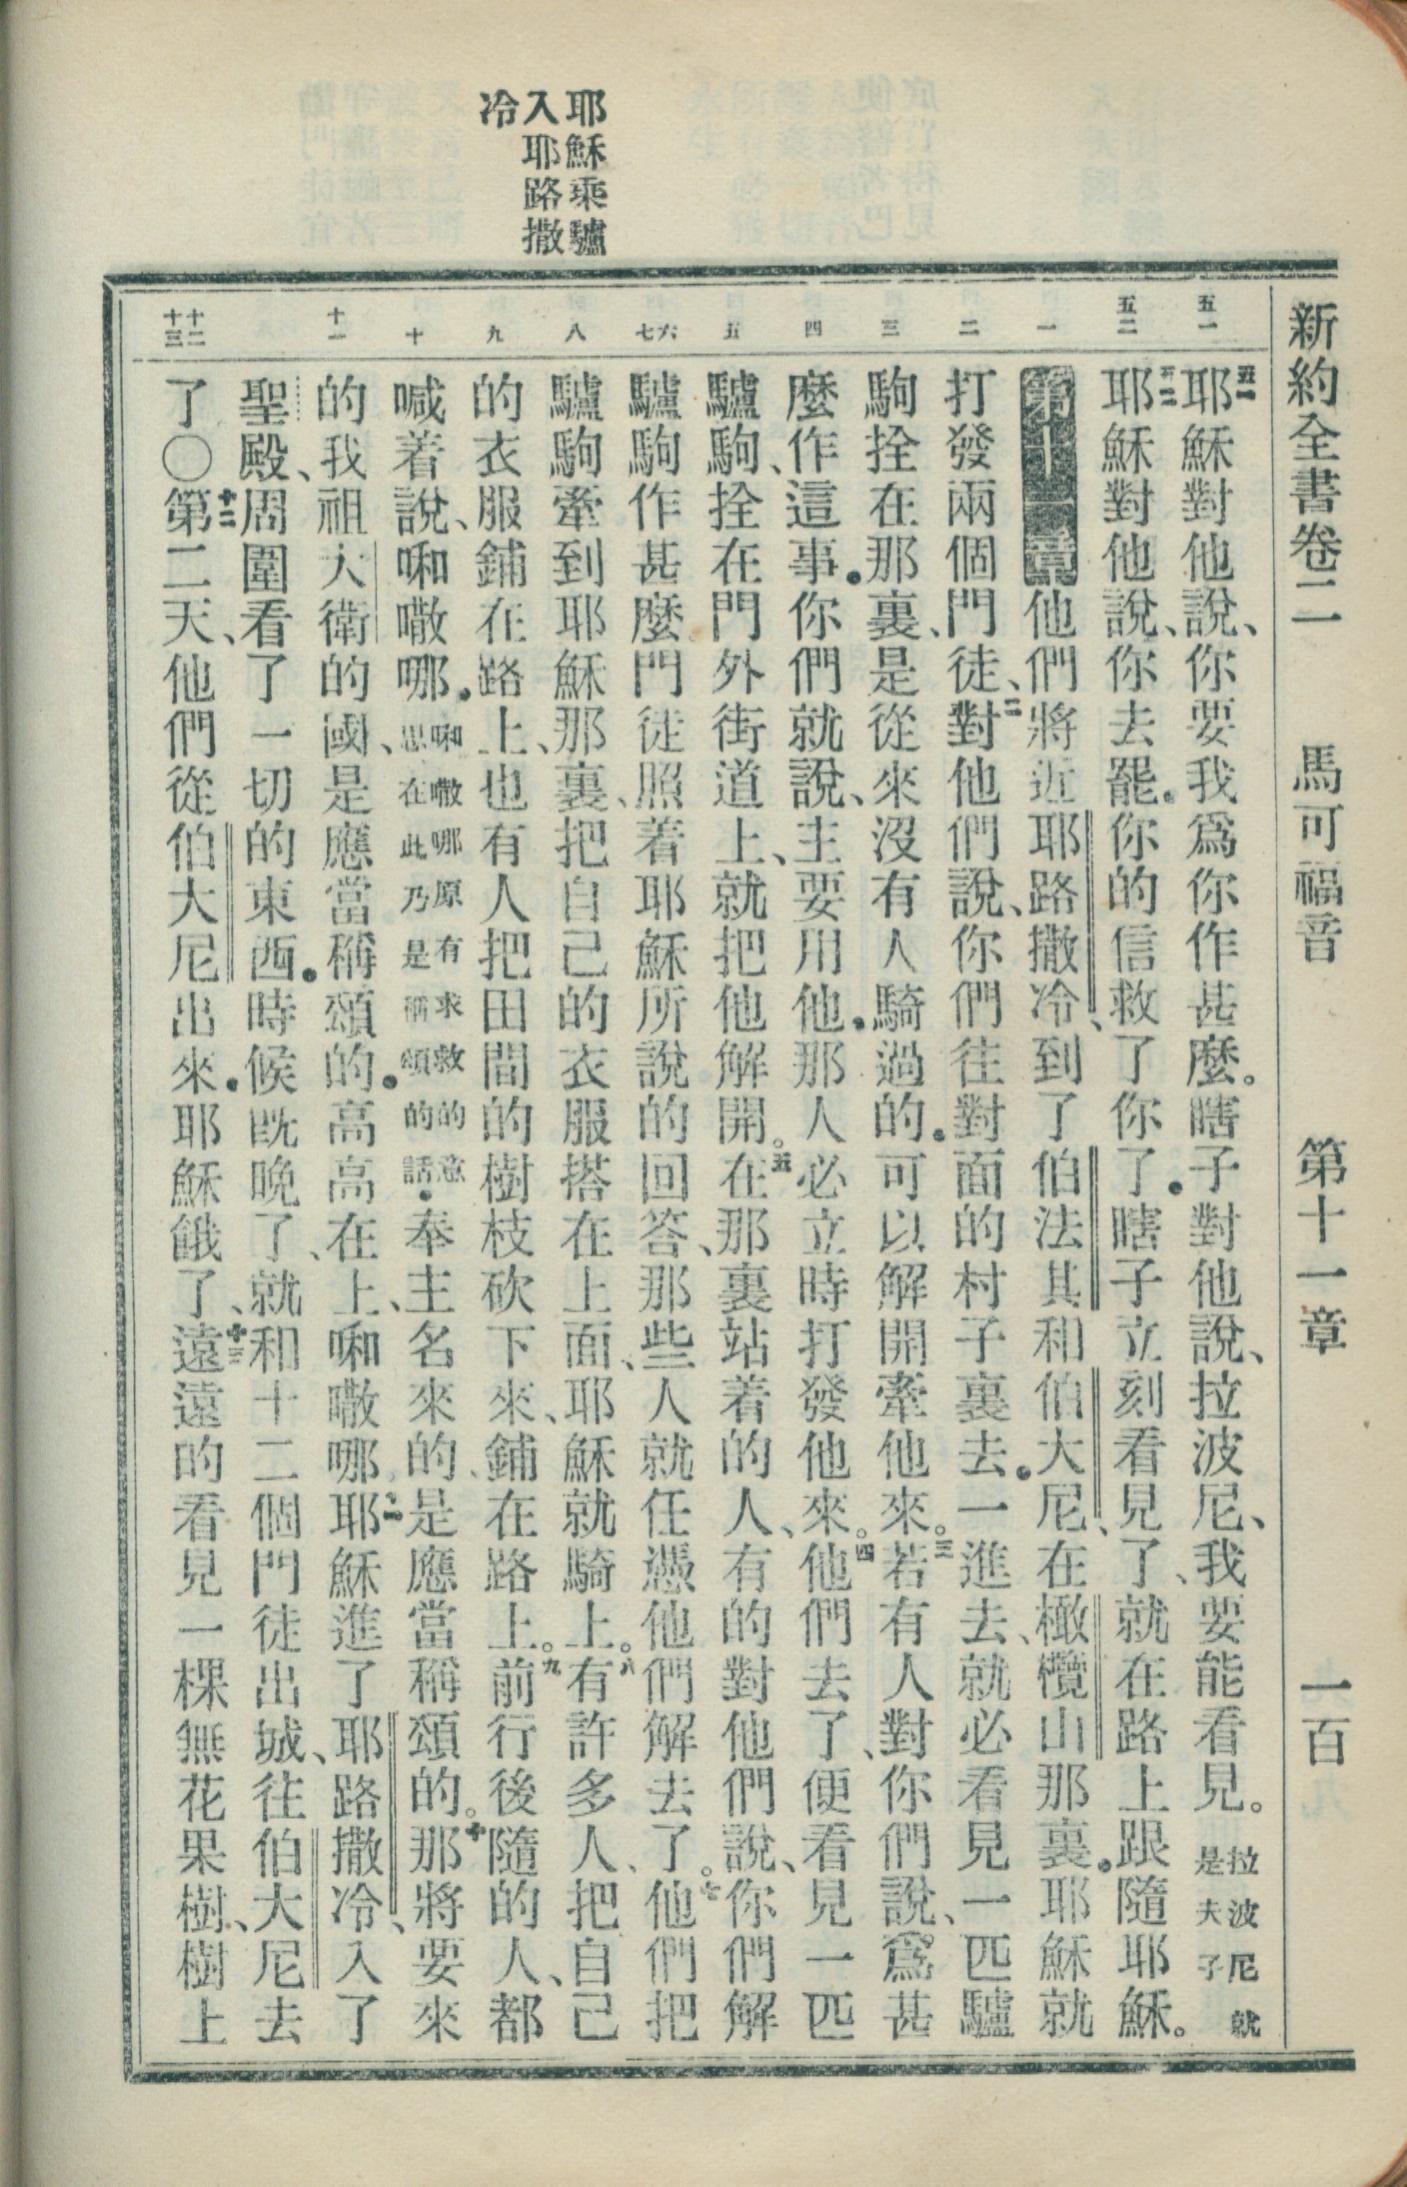 新約全書卷二　馬可福音　第十一章　一百
耶穌乘驢
入耶路撒
冷
五一
五二
一
二
三
四
五
六
七
八
九
十
十一
十二
十三
五一耶穌對他說、你要我爲你作甚麼。瞎子對他說、拉波尼、我要能看見。拉波尼就是夫子
五二耶穌對他說、你去罷。你的信救了你了。瞎子立刻看見了、就在路上跟隨耶穌。
第十一章他們將近耶路撒冷、到了伯法其和伯大尼、在橄欖山那裏。耶穌就
打發兩個門徒、二對他們說、你們往對面的村子裏去。一進去、就必看見一匹驢
駒拴在那裏、是從來沒有人騎過的。可以解開牽他來。三若有人對你們說、爲甚
麼作這事。你們就說、主要用他。那人必立時打發他來。四他們去了、便看見一匹
驢駒、拴在門外街道上、就把他解開。五在那裏站着的人、有的對他們說、你們解
驢駒作甚麼門徒照着耶穌所說的回答、那些人就任憑他們解去了。七他們把
驢駒牽到耶穌那裏、把自己的衣服搭在上面、耶穌就騎上。八有許多人、把自己
的衣服鋪在路上、也有人把田間的樹枝砍下來、鋪在路上。九前行後隨的人、都
喊着說、唎噉哪。唎噉哪原有求救的意思在此乃是稱頌的話。奉主名來的、是應當稱頌的。十那將要來
的我祖大衛的國、是應當稱頌的。高高在上、唎噉哪。十一耶穌進了耶路撒冷、入了
聖殿、周圍看了一切的東西。時候旣晚了、就和十二個門徒出城、往伯大尼去
了〇十二第二天、他們從伯大尼出來。耶穌餓了、十三遠遠的看見一棵無花果樹、樹上